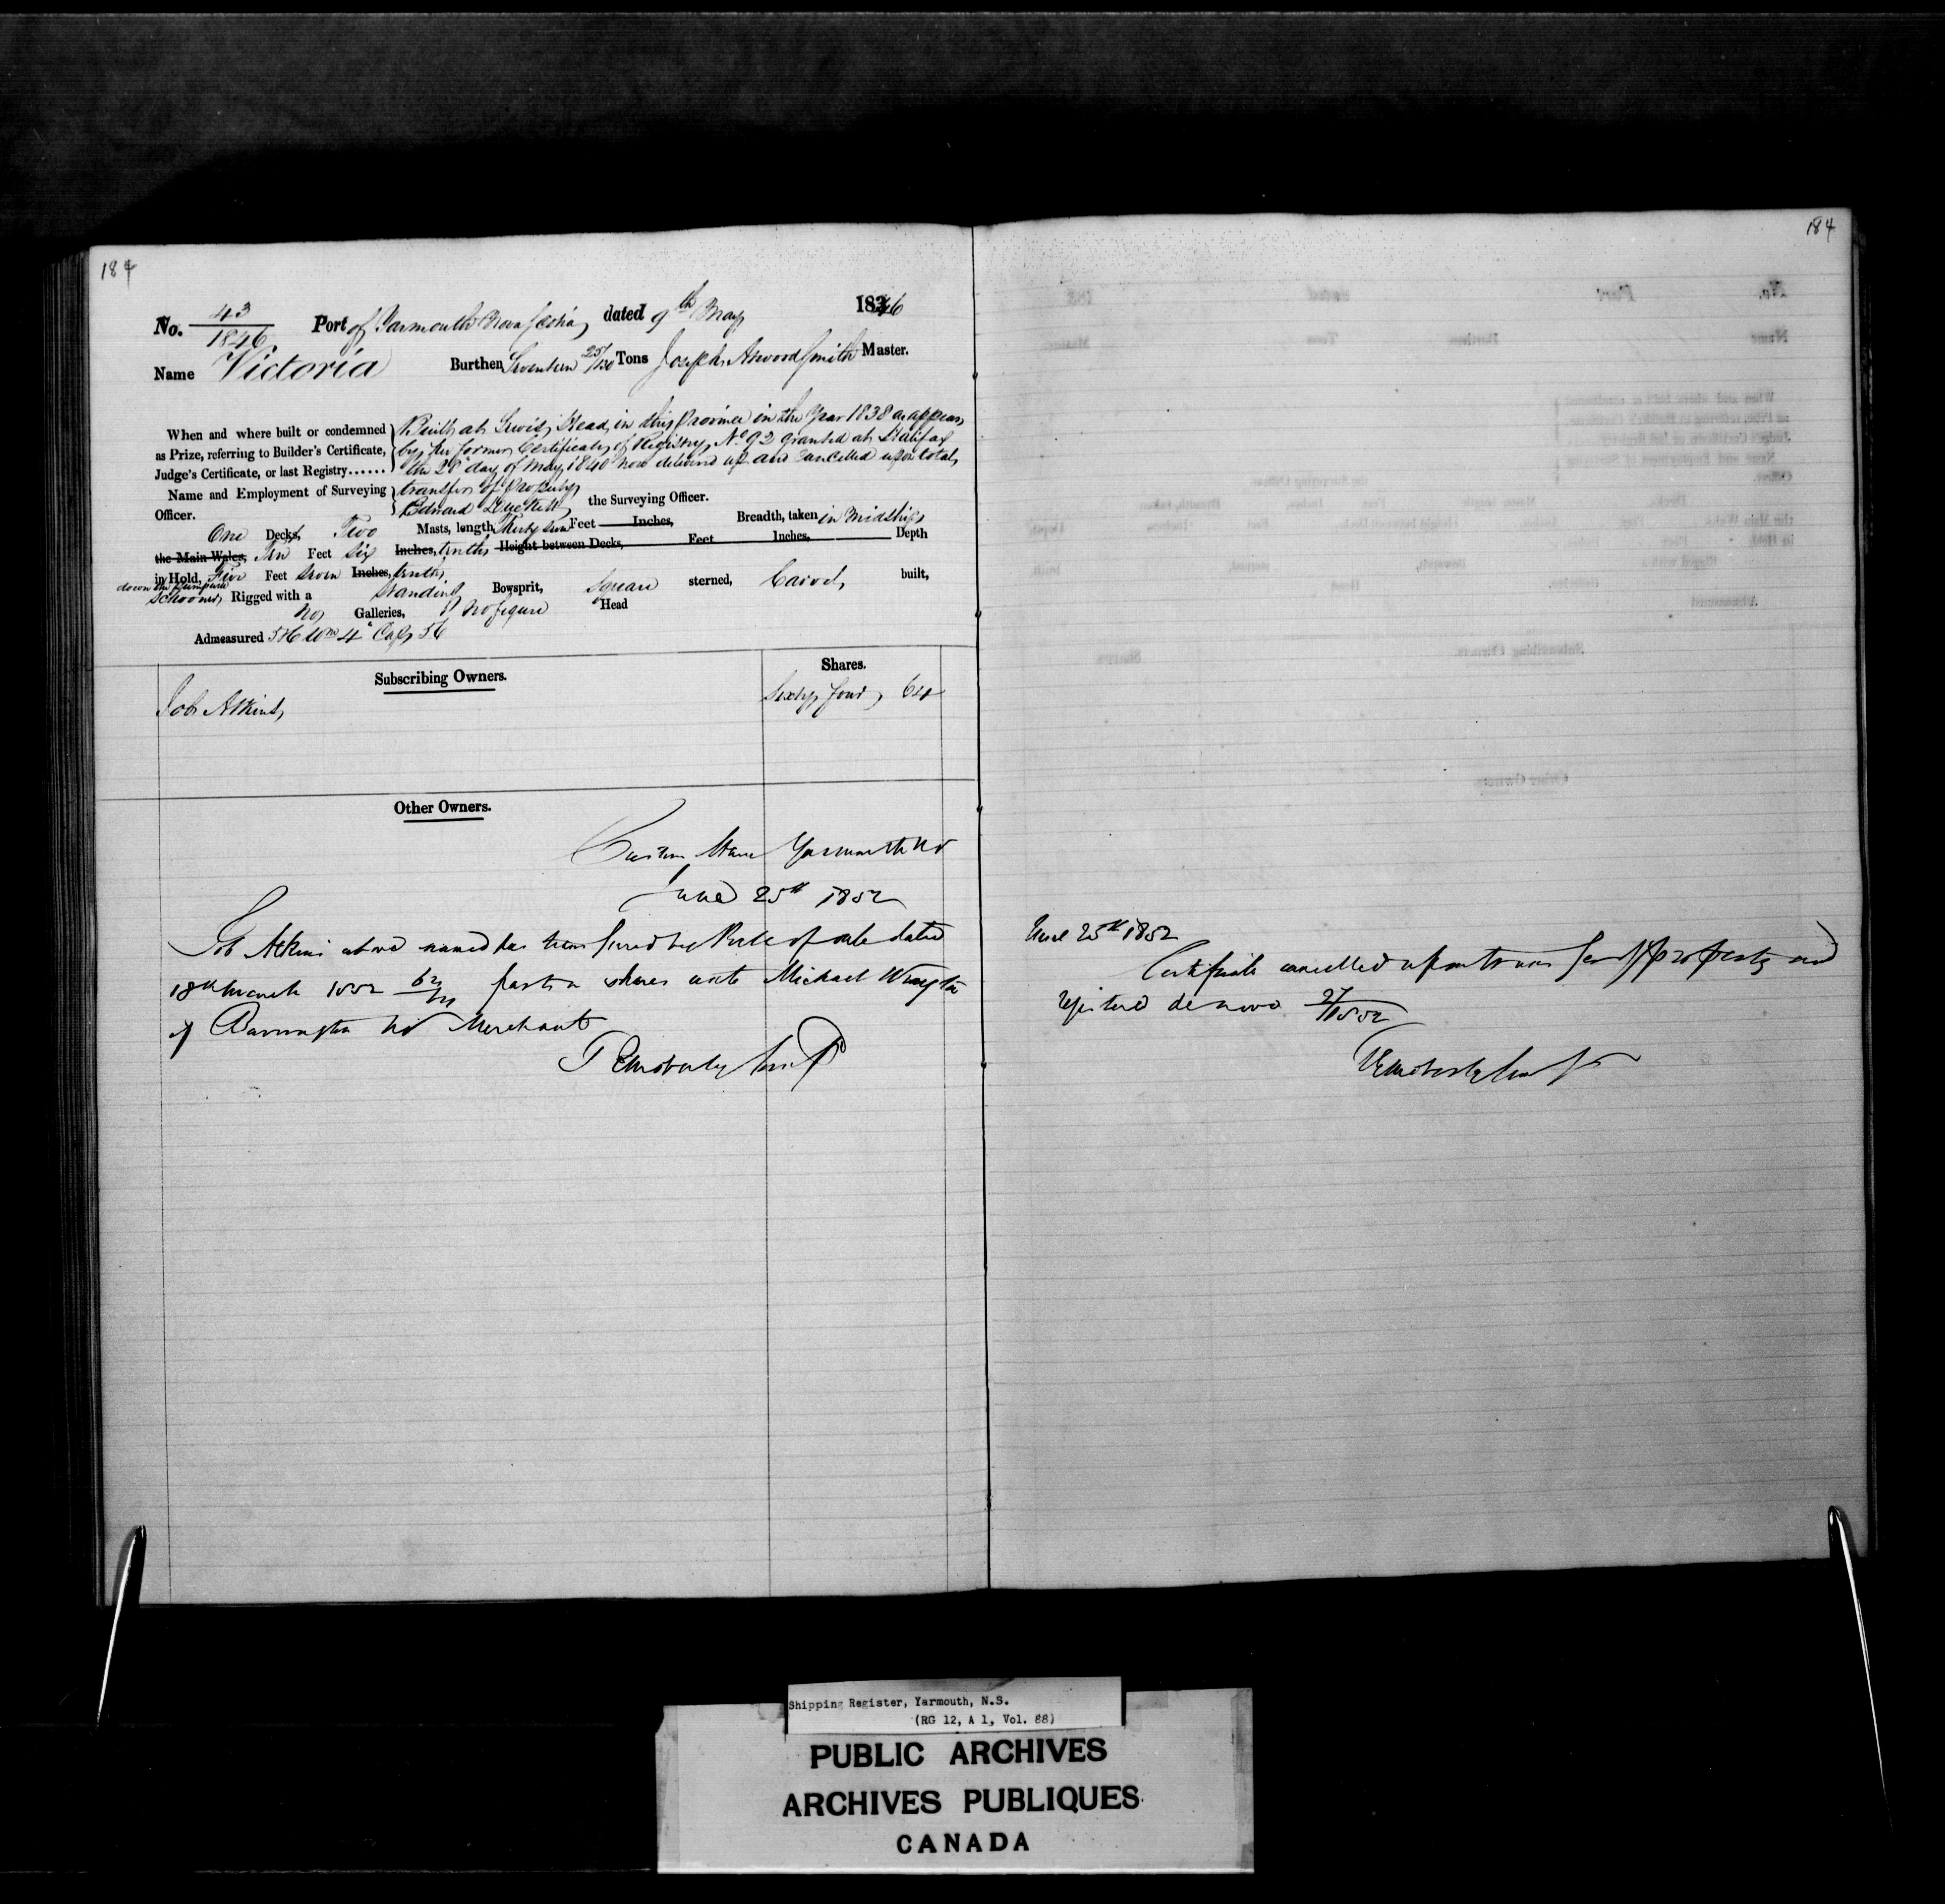 184
184
No. 43/1846 Port of Yarmouth Nova Scotia dated 9th May 1846
Name Victoria Burthen Seventeen 25/130 Tons Joseph Atwood Smith Master.
When and where built or condemned
as Prize, referring to Builder's Certificate,
Judge's Certificate, or last Registry......
Built at Lewis Head in this Province in the Year 1838 as appears
by her former Certificate of Registry No 92 granted at Halifax
the 28 day of May 1840 now delivered up and Cancelled upon total
transfer of Property
Name and Employment of Surveying
Officer.
Edward the Surveying Officer.
One Decks, Two Masts, length, Thirty Feet Inches, Breadth, taken in Midships
the Main Wales, Ten Feet Six Inches, tenths Height between Decks, Feet Inches, Depth
in Hold, Five Feet Seven Inches, tenths
Schooner Rigged with a Standing Bowsprit, Square sterned, Carvel built,
No Galleries, & No figure Head
Admeasured
Subscribing Owners. Shares.
Job Atkins Sixty four 64
Other Owners.
Custom House Yarmouth NS
June 25th 1852
Job Atkins above named has transferred by Bill of sale dated
18th March 1852 64/64 parts or shares unto Michael
of Barrington NS Merchant
June 25th 1852
Certificate cancelled upon transfer of property and
registered de novo 27/1852
Shipping Register, Yarmouth, N.S.
(RG 12, A 1, Vol. 88)
PUBLIC ARCHIVES
ARCHIVES PUBLIQUES
CANADA